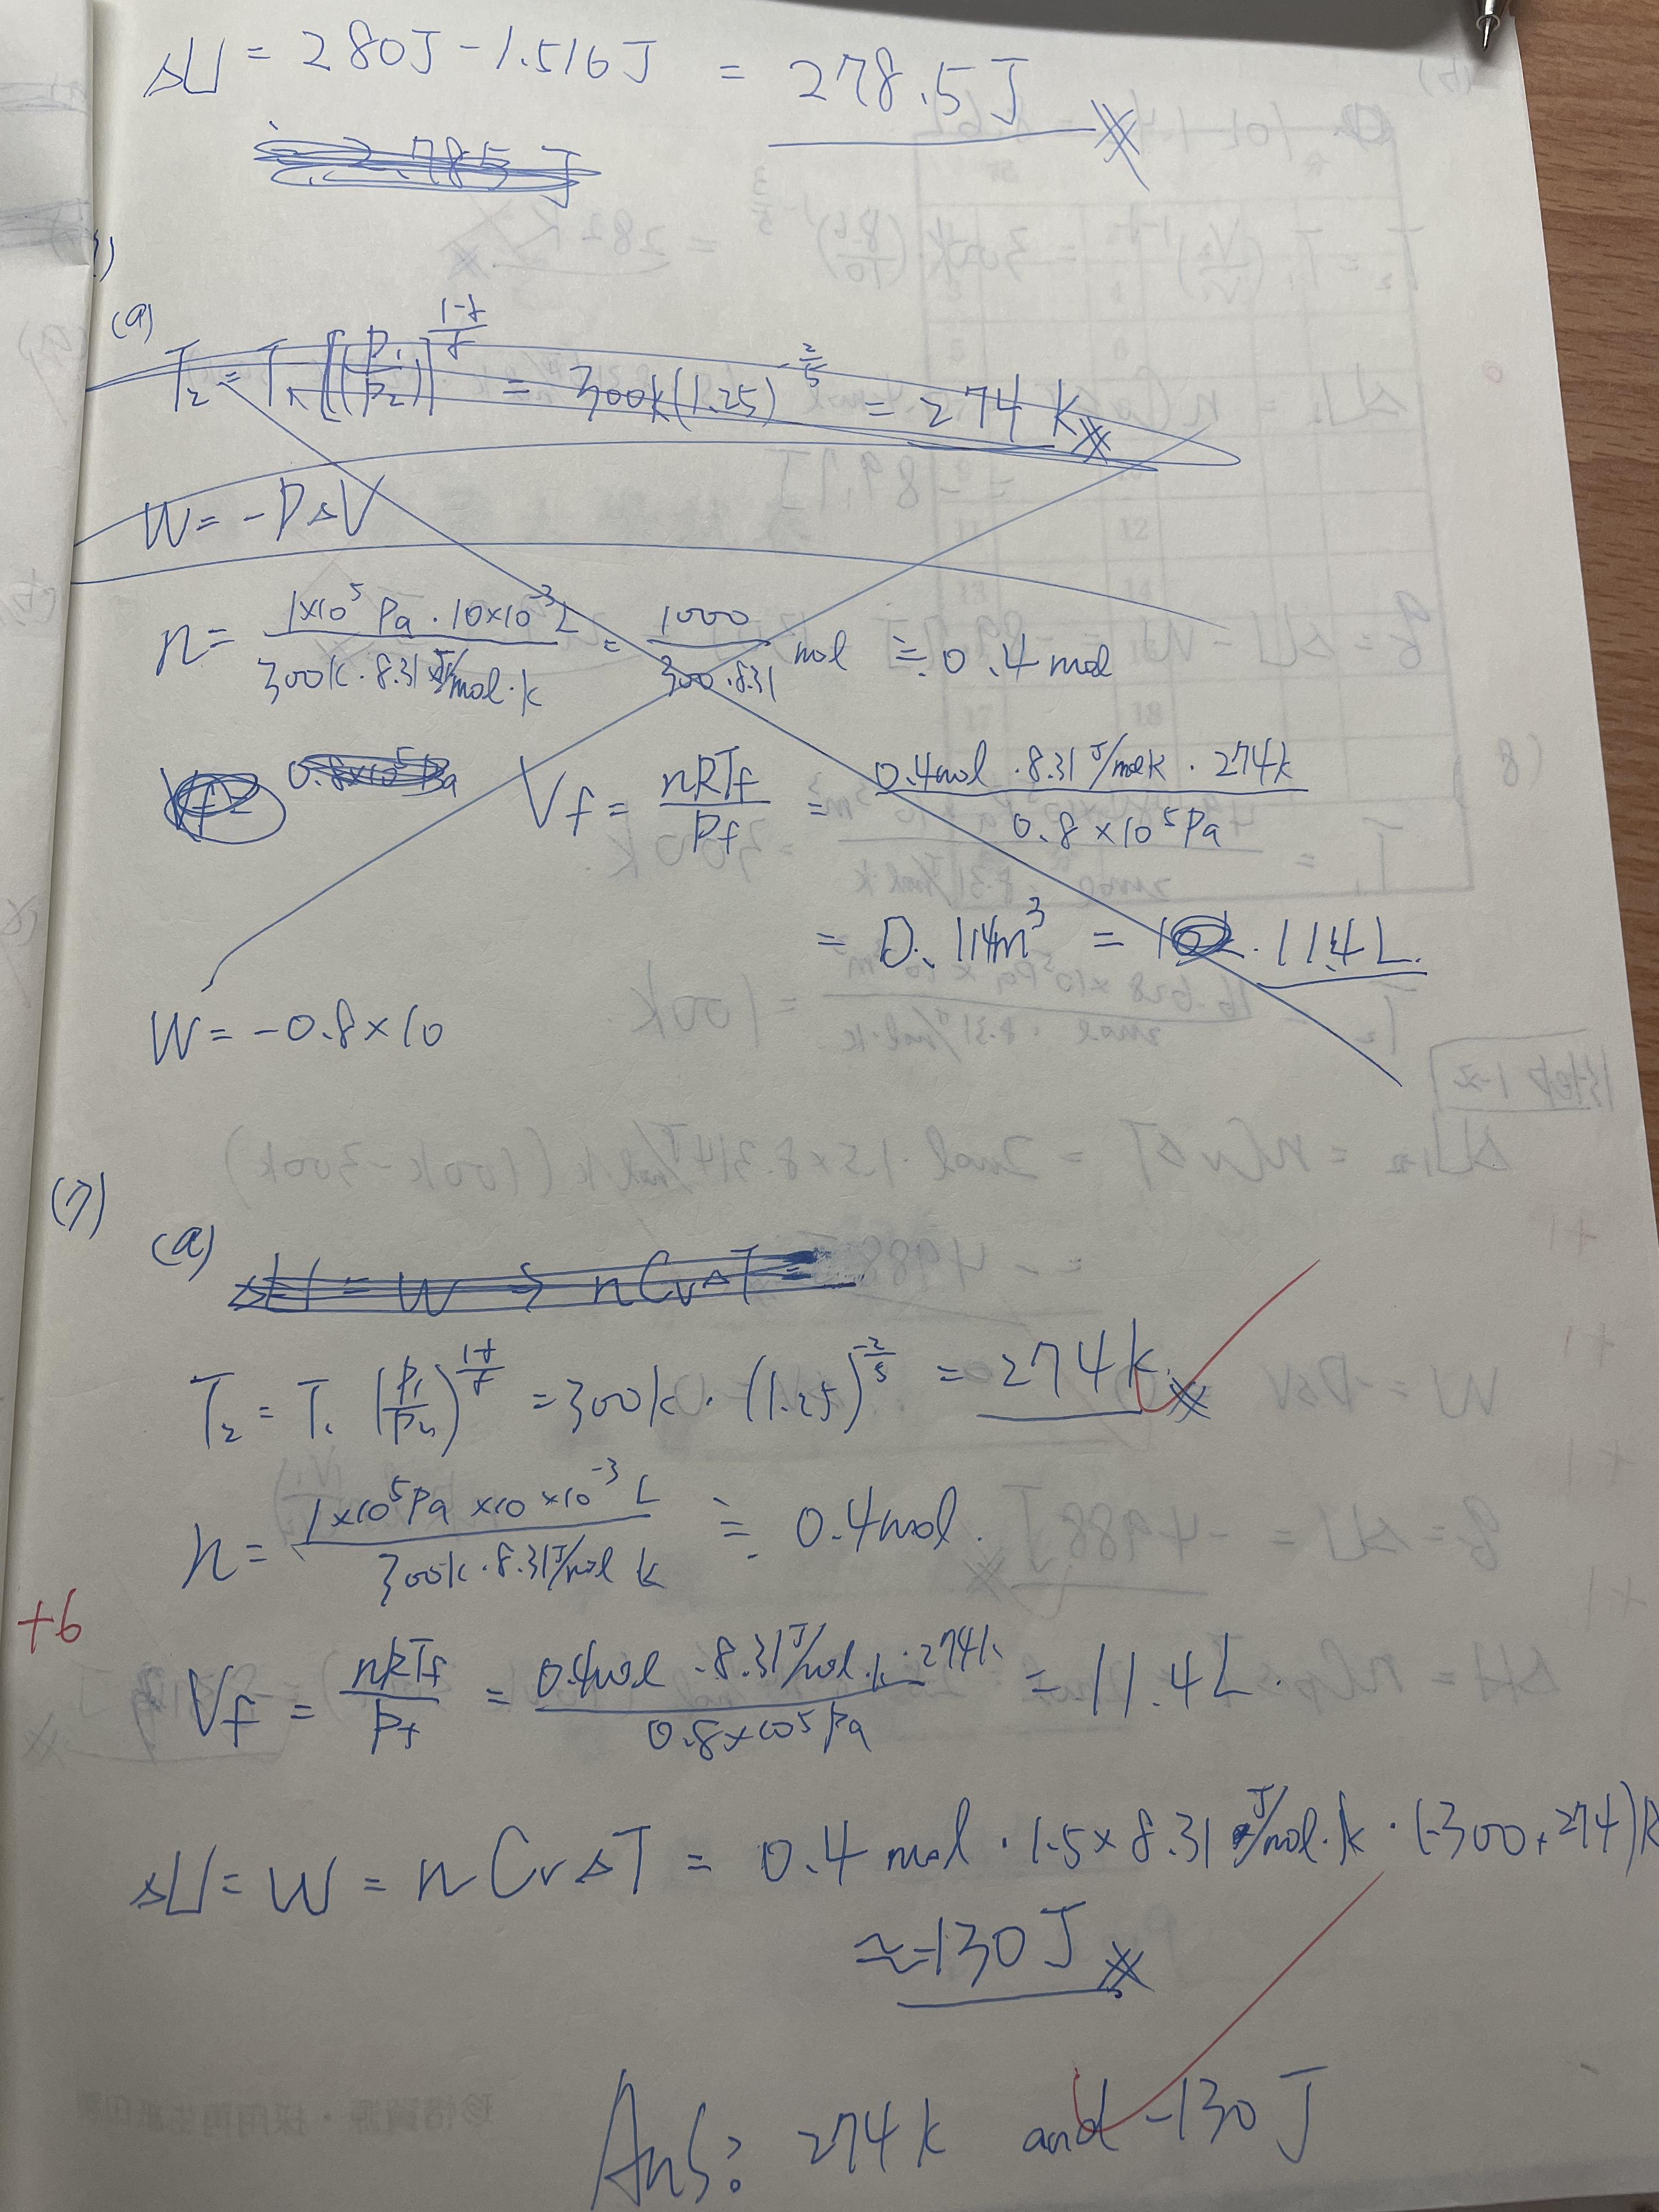 ΔU = 280J - 1.516J = 278.5J
(a)
T₂ = T₁ [(P₁/P₂)]^((1-γ)/γ) = 300k (1.25)^(-2/5) = 274 k
W = - PΔV
n = (1×10⁵ Pa · 10×10⁻³ L)/(300k · 8.31 J/mol·k) = 1000/(300·8.31) mol ≒ 0.4 mol
0.8×10⁵ Pa Vf = nRTf/Pf = (0.4mol · 8.31 J/molk · 274k)/(0.8×10⁵ Pa)
= 0.114m³ = 11.4L.
W = -0.8×10
(7)
(a)
ΔU = W → nCvΔT =
T₂ = T₁ (P₁/P₂)^((1-γ)/γ) = 300k · (1.25)^(-2/5) = 274k
n = (1×10⁵Pa ×10×10⁻³ L)/(300k·8.31J/mol k) ≒ 0.4mol.
+6
Vf = nRTf/Pf = (0.4mol · 8.31 J/mol·k · 274k)/(0.8×10⁵Pa) = 11.4L.
ΔU = W = nCvΔT = 0.4 mol · 1.5×8.31 J/mol·k · (-300+274)k
≈-130J
Ans: 274k and -130J